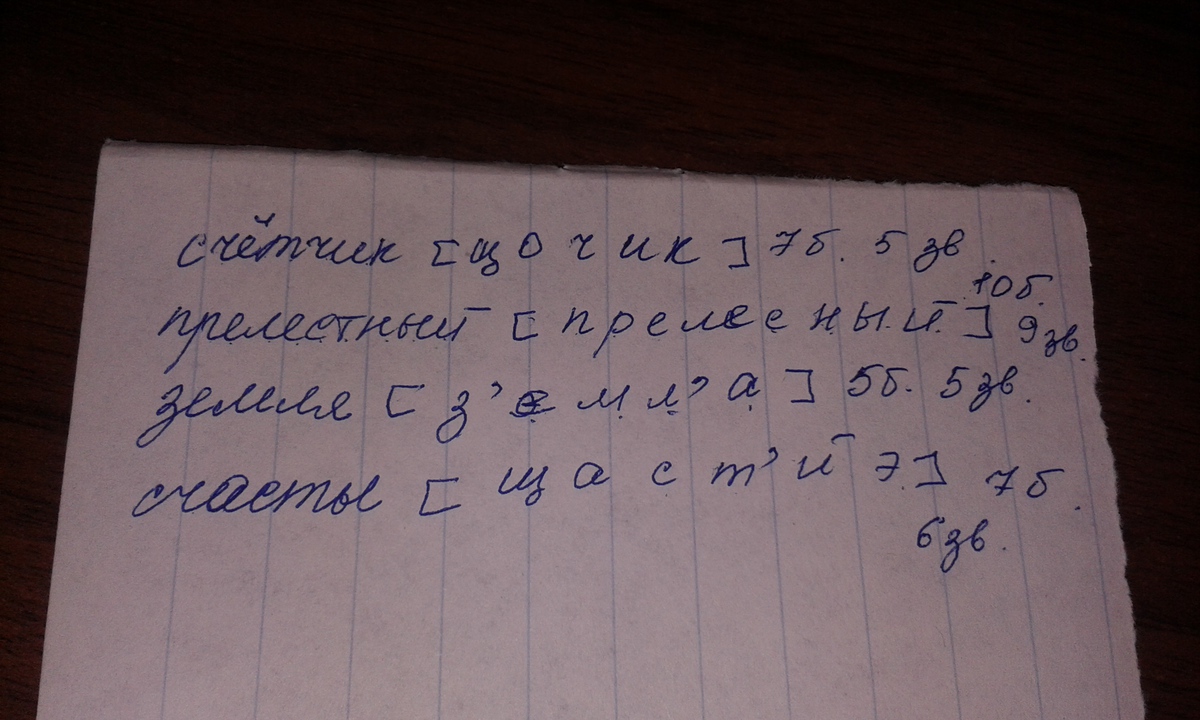 счётчик [щочик] 7б. 5 зв.
прелестный [прелесный] 10б. 9 зв.
земля [з'емл'а] 5б. 5 зв.
счасты [щаст'йэ] 7б.
6 зв.